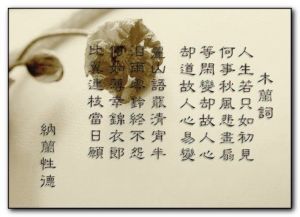 木蘭詞
人生若只如初見
何事秋風悲畫扇
等閑變却故人心
却道故人心易變
驪山語罷清宵半
泪雨零鈴終不怨
何如薄幸錦衣郎
比翼連枝當日願
納蘭性德